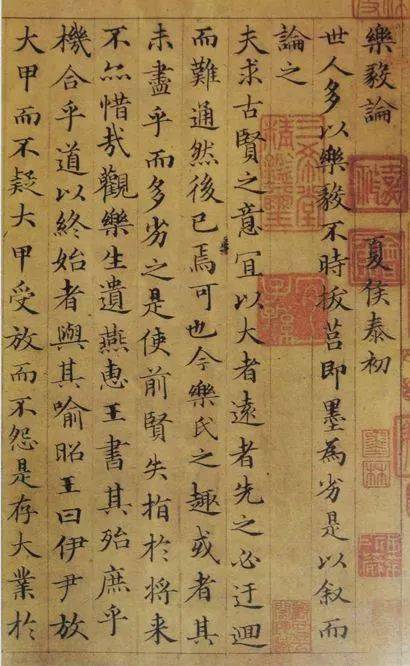 樂毅論 夏侯泰初
世人多以樂毅不時拔莒即墨為劣是以叙而
論之
夫求古賢之意宜以大者遠者先之必迂迴
而難通然後已焉可也今樂氏之趣或者其
未盡乎而多劣之是使前賢失指於將来
不亦惜哉觀樂生遺燕惠王書其殆庶乎
機合乎道以終始者與其喻昭王曰伊尹放
大甲而不疑大甲受放而不怨是存大業於
三希堂
精鑑璽
宜子孫